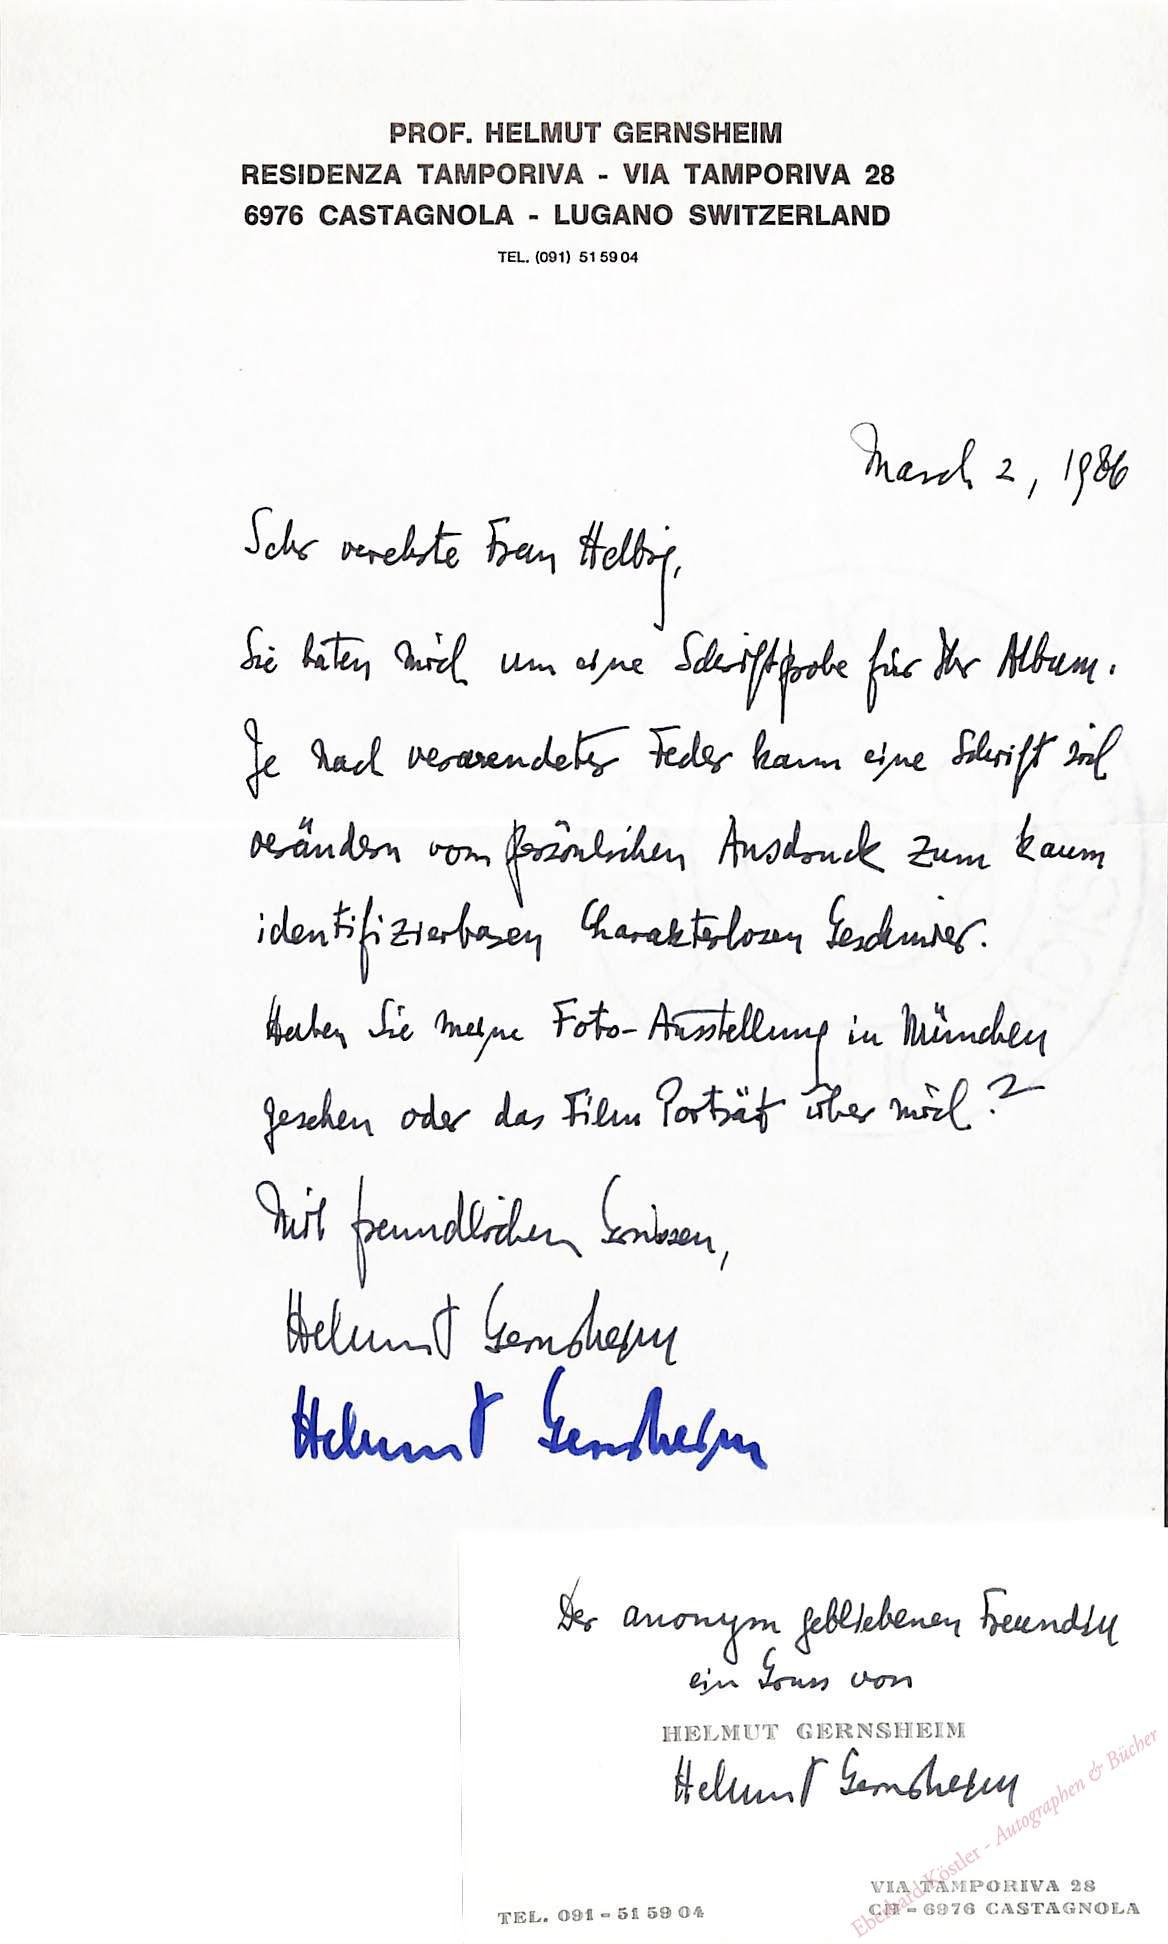 PROF. HELMUT GERNSHEIM
RESIDENZA TAMPORIVA - VIA TAMPORIVA 28
6976 CASTAGNOLA - LUGANO SWITZERLAND
TEL. (091) 51 59 04
March 2, 1986
Sehr verehrte Frau Helbig,
Sie baten mich um eine Schriftprobe für Ihr Album.
Je nach verwendeter Feder kann eine Schrift sich
verändern vom persönlichen Ausdruck zum kaum
identifizierbaren Charakterlosen Geschmier.
Haben Sie meine Foto-Ausstellung in München
gesehen oder das Film Porträt über mich?
Mit freundlichen Grüssen,
Helmut Gernsheim
Helmut Gernsheim
Der anonym gebliebenen Freundin
ein Gruss von
HELMUT GERNSHEIM
Helmut Gernsheim
VIA TAMPORIVA 28
TEL. 091 - 51 59 04
CH - 6976 CASTAGNOLA
Eberhard Köstler - Autographen & Bücher